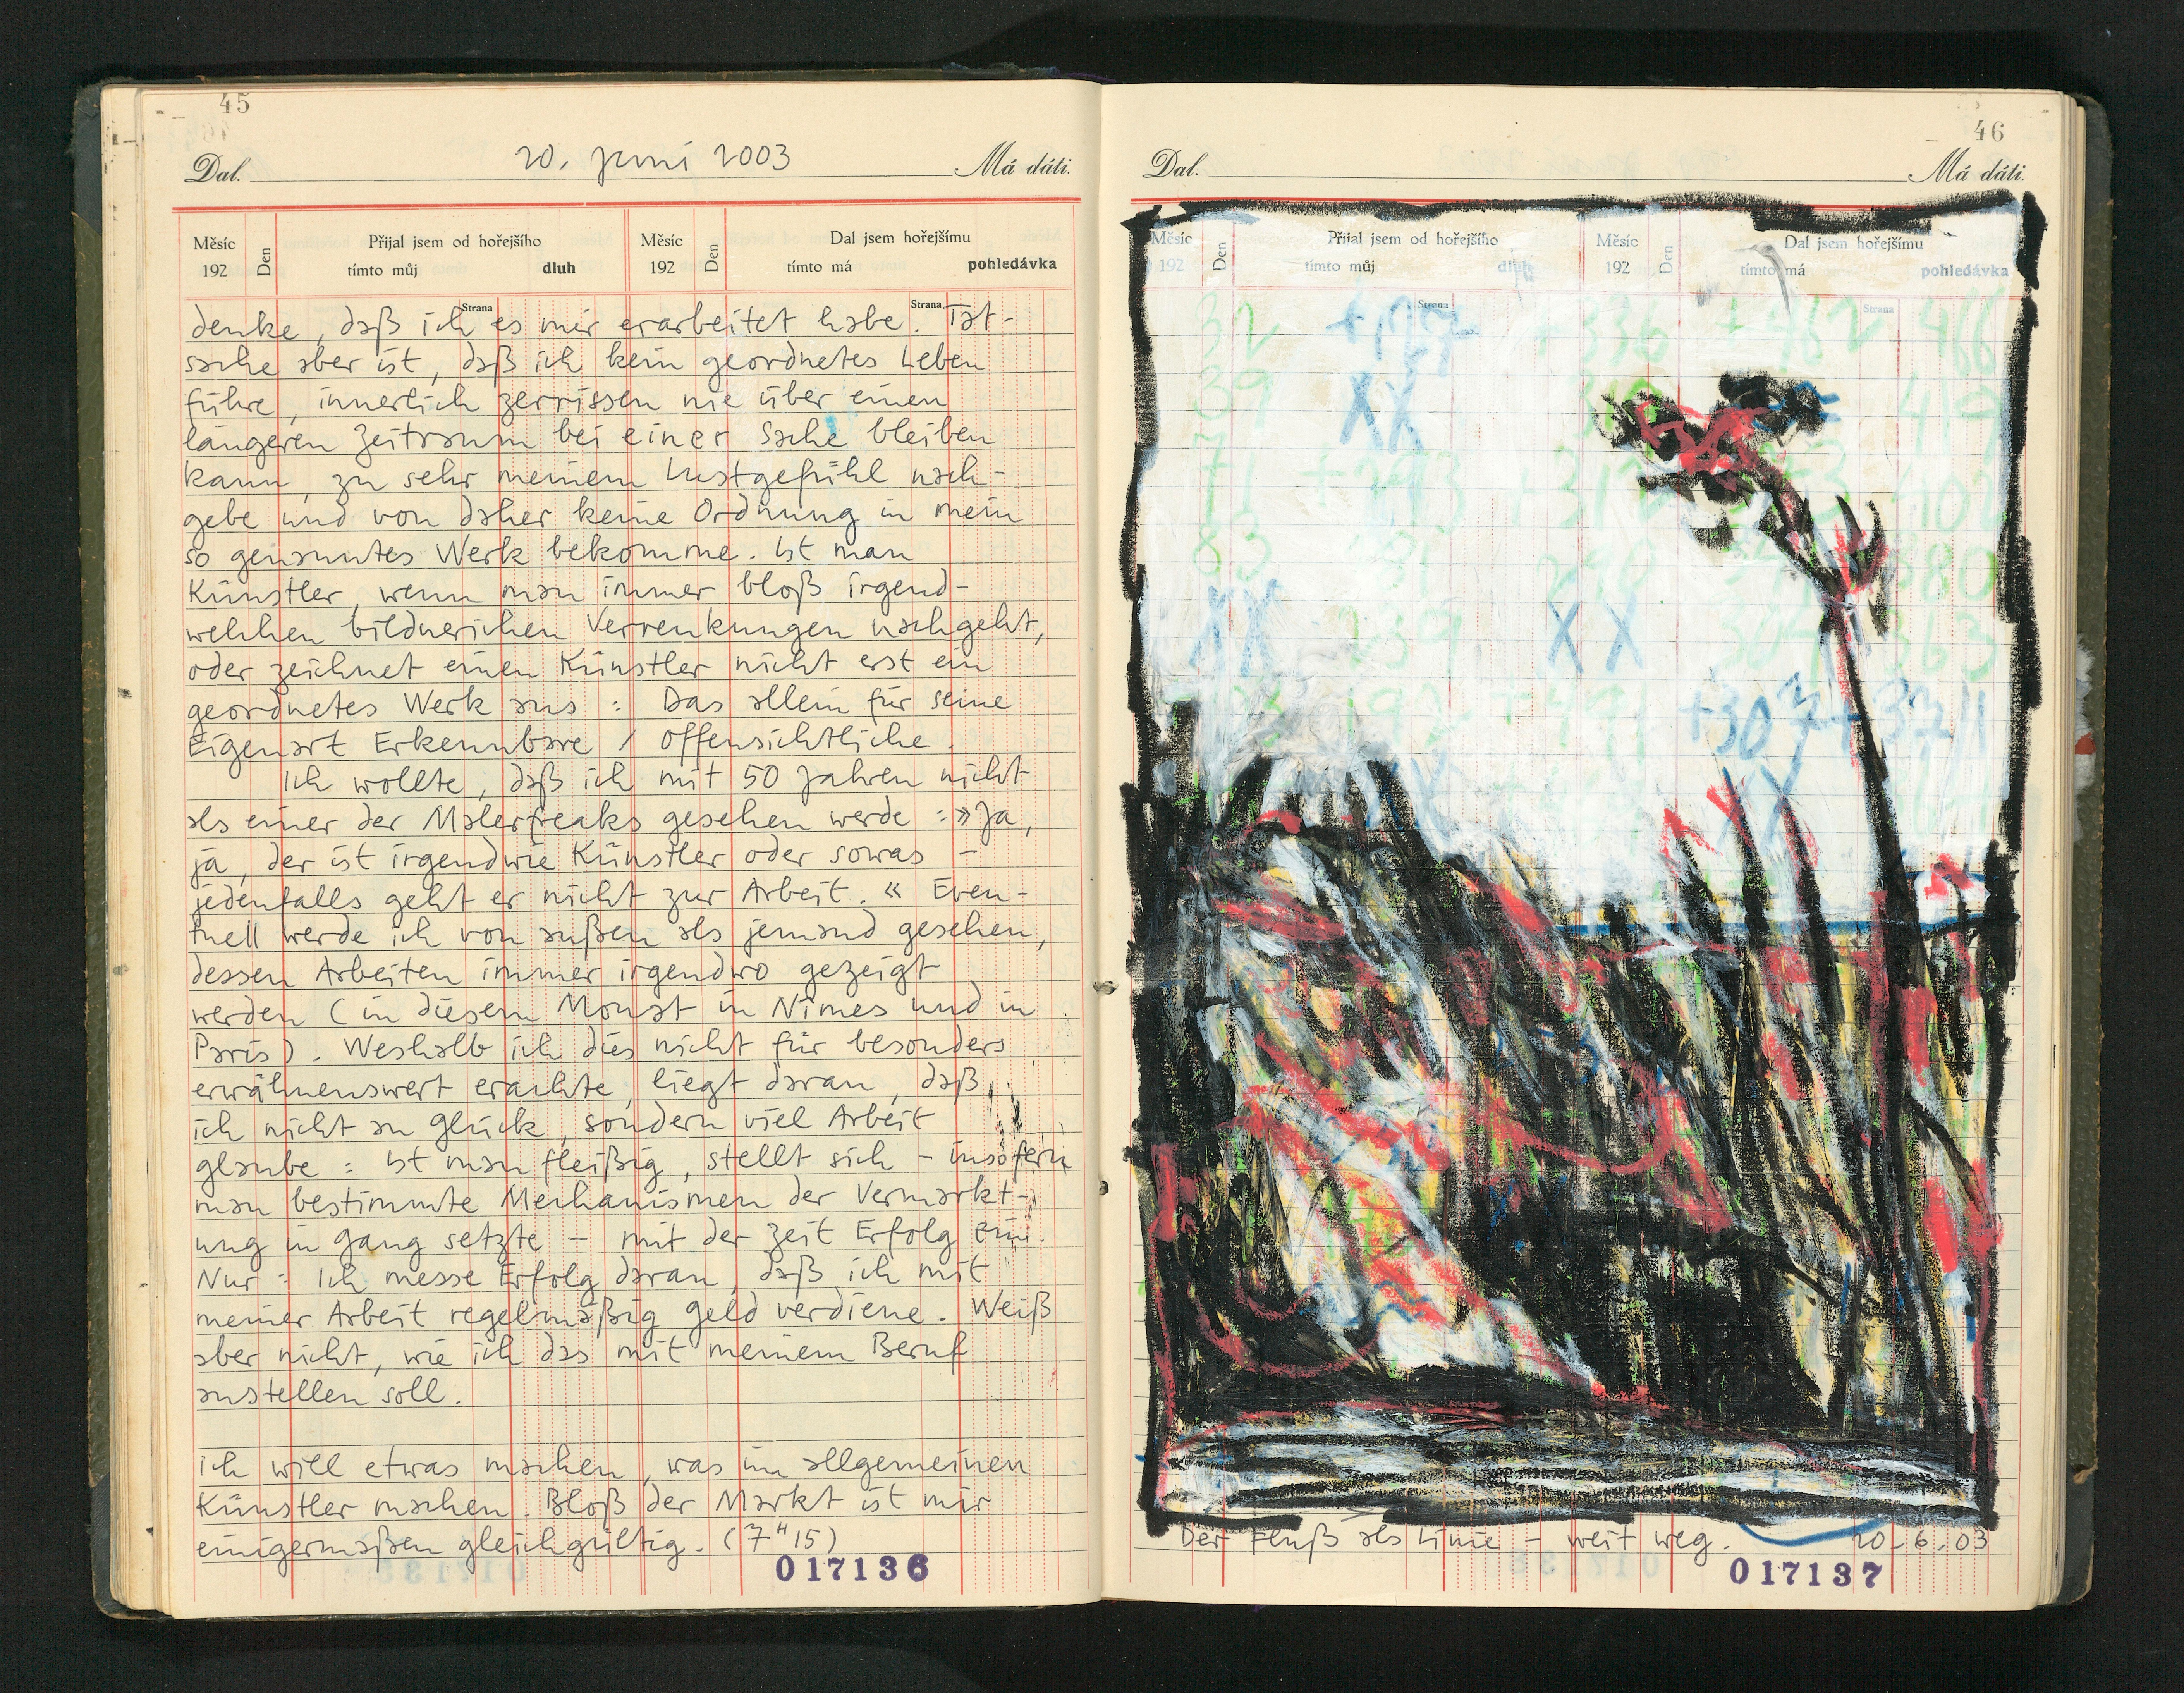 45
20. Juni 2003
Dal. Má dáti.
Měsíc 192 Den Přijal jsem od hořejšího tímto můj dluh Strana Měsíc 192 Den Dal jsem hořejšímu tímto má pohledávka Strana
denke, daß ich es mir erarbeitet habe. Tat-
sache aber ist, daß ich kein geordnetes Leben
führe, innerlich zerrissen nie über einen
längeren Zeitraum bei einer Sache bleiben
kann, zu sehr meinem Lustgefühl nach-
gebe und von daher keine Ordnung in mein
so genanntes Werk bekomme. Ist man
Künstler, wenn man immer bloß irgend-
welchen bildnerichen Verrenkungen nachgeht,
oder zeichnet einen Künstler nicht erst ein
geordnetes Werk aus : Das allein für seine
Eigenart Erkennbare / Offensichtliche.
Ich wollte, daß ich mit 50 Jahren nicht
als einer der Malerfreaks gesehen werde : »Ja,
ja, der ist irgendwie Künstler oder sowas –
jedenfalls geht er nicht zur Arbeit. « Even-
tuell werde ich von außen als jemand gesehen,
dessen Arbeiten immer irgendwo gezeigt
werden (in diesem Monat in Nîmes und in
Paris). Weshalb ich dies nicht für besonders
erwähnenswert erachte, liegt daran, daß
ich nicht an Glück, sondern viel Arbeit
glaube : Ist man fleißig, stellt sich – insofern
man bestimmte Mechanismen der Vermarkt-
ung in Gang setzte – mit der Zeit Erfolg ein.
Nur : Ich messe Erfolg daran, daß ich mit
meiner Arbeit regelmäßig Geld verdiene. Weiß
aber nicht, wie ich das mit meinem Beruf
anstellen soll.
ich will etwas machen, was im allgemeinen
Künstler machen. Bloß der Markt ist mir
einigermaßen gleichgültig. (7 H 15)
017136
46
Dal. Má dáti.
Měsíc 192 Den Přijal jsem od hořejšího tímto můj dluh Strana Měsíc 192 Den Dal jsem hořejšímu tímto má pohledávka Strana
XX
XX X X
Der Fluß als Linie – weit weg. 20-6.03
017137